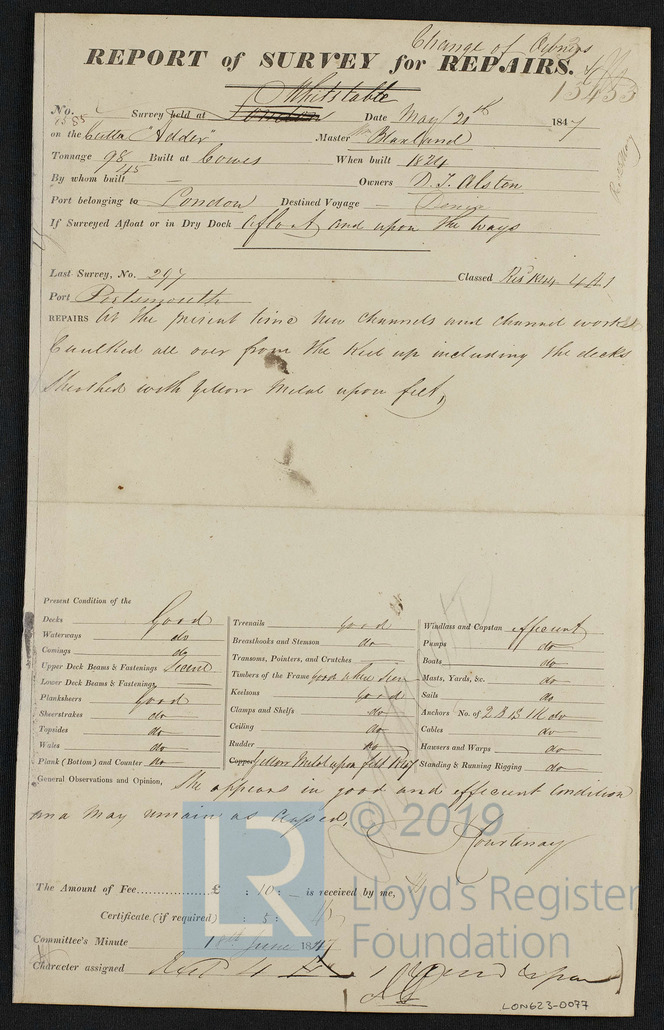 Change of Owners
REPORT of SURVEY for REPAIRS.
15453
Whitstable
No. 1585 Survey held at London Date May 20th 1847
on the Cutter "Adder" Master Wm Blaxland
Tonnage 98 45 Built at Cowes When built 1824
By whom built — Owners D. T. Alston
Port belonging to London Destined Voyage —
If Surveyed Afloat or in Dry Dock afloat and upon the Ways
Last Survey, No. 297 Classed 4 A1
Port Portsmouth
REPAIRS At the present time new channels and channel works
Caulked all over from the Keel up including the decks
Sheathed with Yellow Metal upon felt,
Present Condition of the
Decks Good
Waterways do
Comings do
Upper Deck Beams & Fastenings Decent
Lower Deck Beams & Fastenings
Planksheers Good
Sheerstrakes do
Topsides do
Wales do
Plank (Bottom) and Counter do
Treenails good
Breasthooks and Stemson do
Transoms, Pointers, and Crutches
Timbers of the Frame good when seen
Keelsons Good
Clamps and Shelfs do
Ceiling do
Rudder do
Copper Yellow Metal upon felt
Windlass and Capstan efficient
Pumps do
Boats do
Masts, Yards, &c. do
Sails do
Anchors No. of 2 B 1 S 1 K do
Cables do
Hawsers and Warps do
Standing & Running Rigging do
General Observations and Opinion, She appears in good and efficient condition
and may remain as classed,
Courtenay
The Amount of Fee............... £ : 10 : — is received by me,
Certificate (if required) : 5 :
Committee's Minute 18th June 1847
Character assigned
LON623-0077
LR
© 2019
Lloyd's Register
Foundation